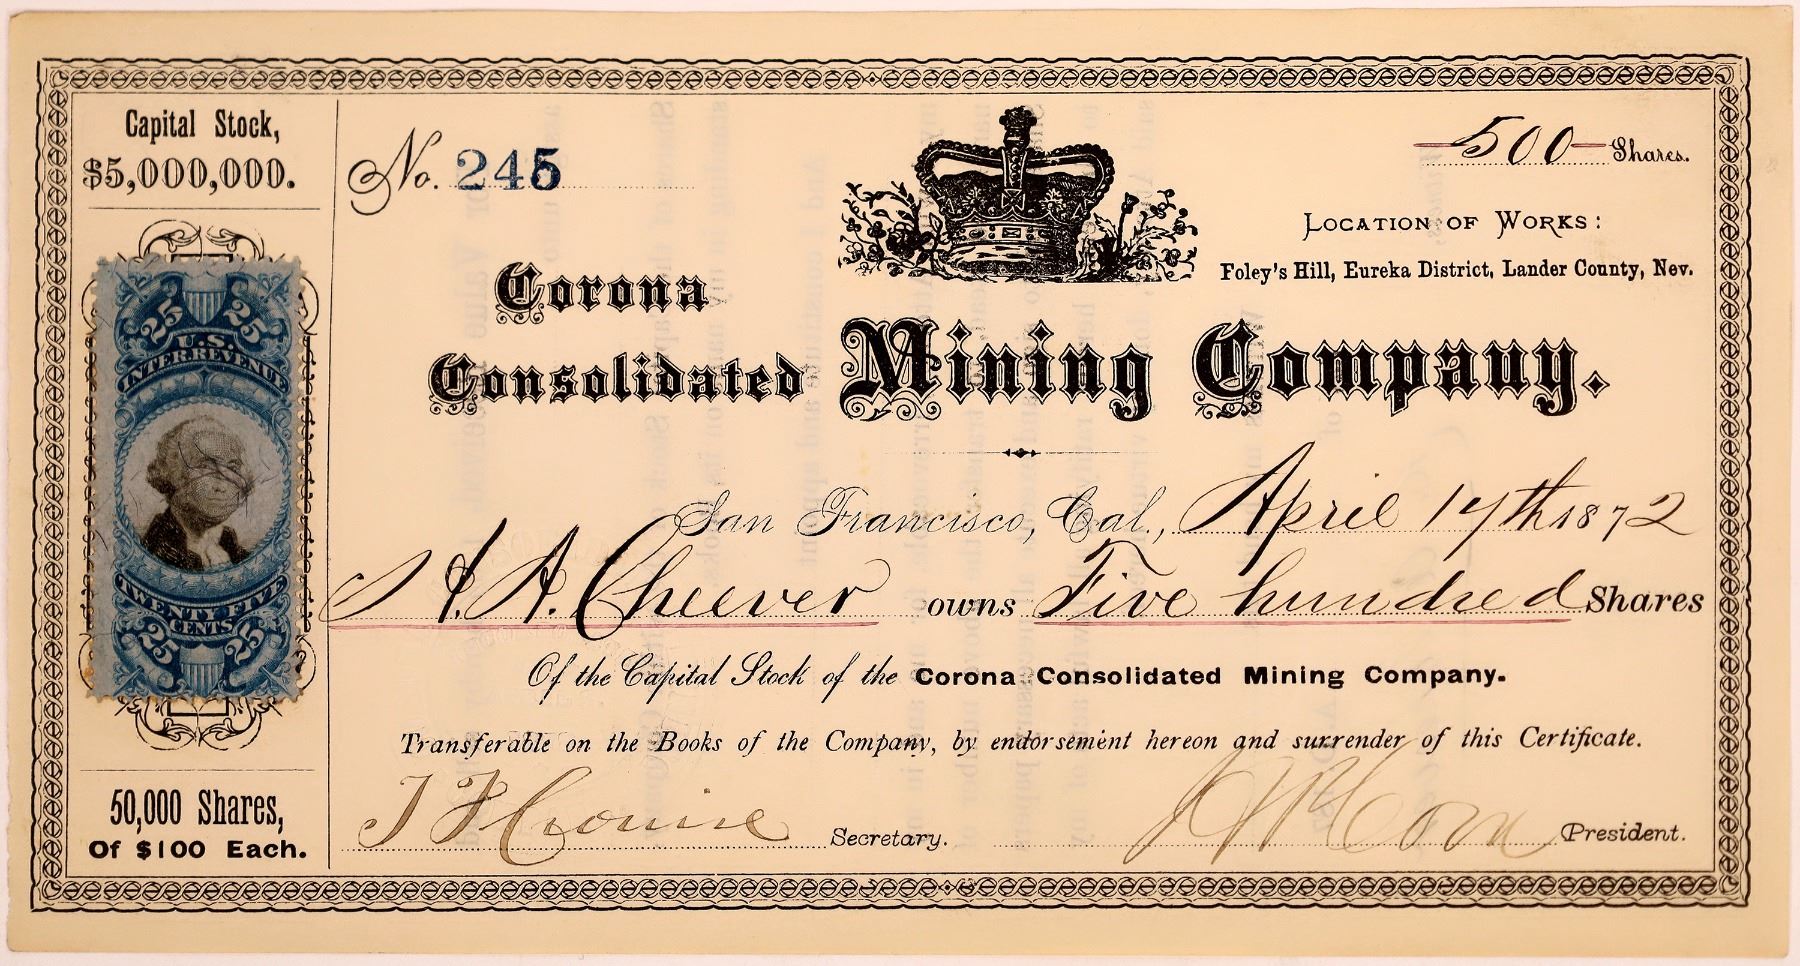 Capital Stock,
$5,000,000.
25 25
U.S.
INTER. REVENUE
TWENTY FIVE
CENTS
25 25
50,000 Shares,
Of $100 Each.
No. 245
500 Shares.
LOCATION OF WORKS:
Foley's Hill, Eureka District, Lander County, Nev.
Corona
Consolidated Mining Company.
San Francisco, Cal., April 17th 1872
H. A. Cheever owns Five hundred Shares
Of the Capital Stock of the Corona Consolidated Mining Company.
Transferable on the Books of the Company, by endorsement hereon and surrender of this Certificate.
Secretary. President.